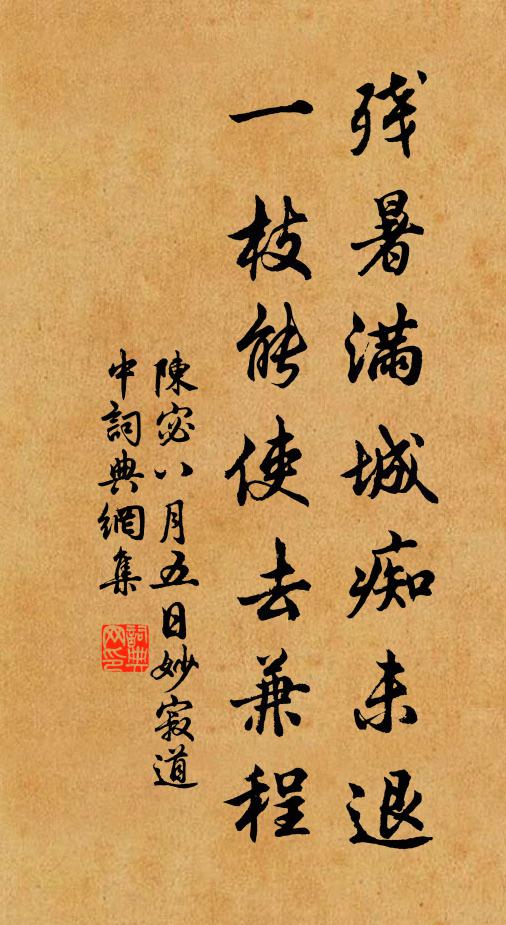 残暑满城痴未退
一枝能使去兼程
陳宓八月五日妙寂道
中詞典網集
詞典
网印